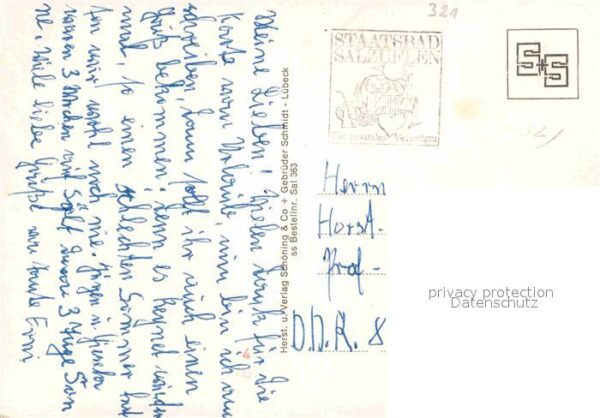 321
STAATSBAD
SALZUFLEN
Ein gesundes Vergnügen
S+S
Meine Lieben! Vielen Dank für die
Karte vom Urlaub, nun bin ich am
schreiben, dann sollt ihr auch einen
Gruß bekommen; denn es regnet wieder
mal, so einen schlechten Sommer hat
ten wir wohl noch nie. Jürgen u.
waren 3 Wochen auf Sylt davon 3 Tage Son
ne. Viele liebe Grüße von Erni
Herst. u. Verlag Schöning & Co + Gebrüder Schmidt - Lübeck
ss Bestellnr. Sal 363
Herrn
Horst
Prof-
D.D.R. 8
privacy protection
Datenschutz